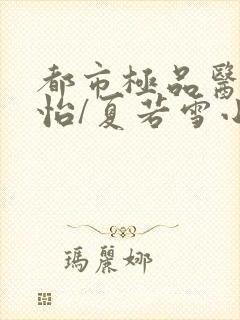 都市極品醫
怡/夏若雪小
瑪麗娜